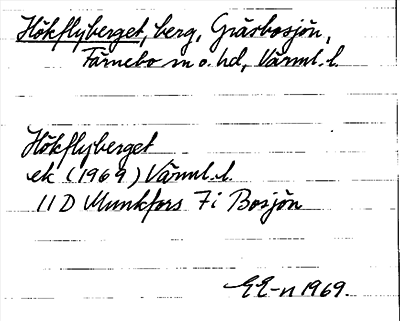 Hökflyberget, berg, Gräsbosjön,
Färnebo sn o. hd, Värml. l.
Hökflyberget
ek (1969) Värml. l.
11 D Munkfors 7 i Bosjön
EE-n 1969.